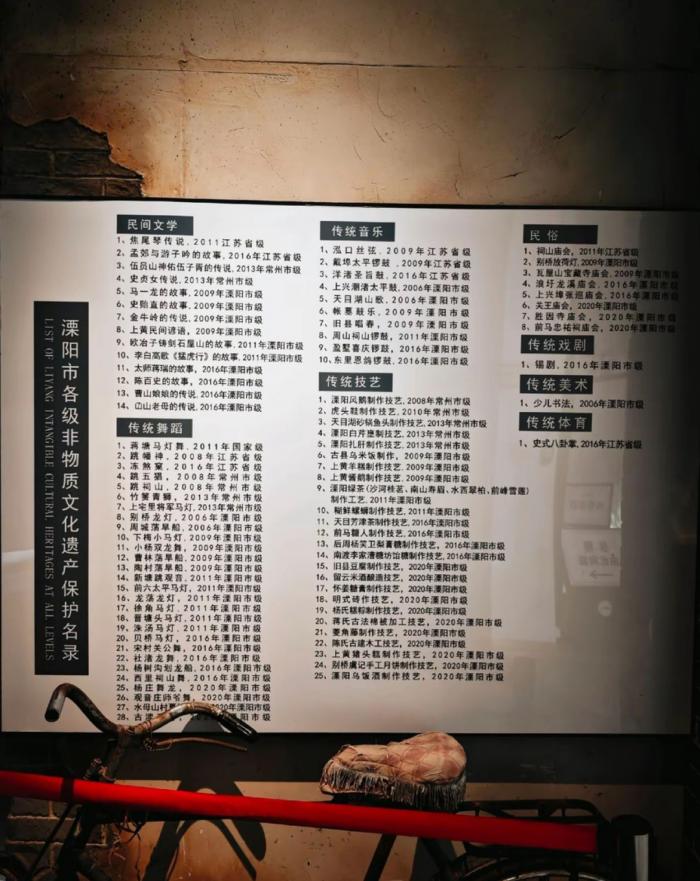 溧阳市各级非物质文化遗产保护名录
LIST OF LIYANG INTANGIBLE CULTURAL HERITAGES AT ALL LEVELS
民间文学
1、焦尾琴传说,2011江苏省级
2、孟郊与游子吟的故事,2016年江苏省级
3、伍员山神佑伍子胥的传说,2013年常州市级
4、史贞女传说,2013年常州市级
5、马一龙的故事,2009年溧阳市级
6、史贻直的故事,2009年溧阳市级
7、金牛岭的传说,2009年溧阳市级
8、上黄民间谚语,2009年溧阳市级
9、欧冶子铸剑石屋山的故事,2011年溧阳市级
10、李白高歌《猛虎行》的故事,2011年溧阳市级
11、太师蒋瑞的故事,2016年溧阳市级
12、陈百史的故事,2016年溧阳市级
13、曹山娘娘的传说,2016年溧阳市级
14、山老母的传说,2016年溧阳市级
传统舞蹈
1、蒋塘马灯舞,2011年国家级
2、跳幡神,2008年江苏省级
3、冻煞窠,2016年江苏省级
4、跳五猖,2008年常州市级
5、跳祠山,2008年常州市级
6、竹箦青狮,2013年常州市级
7、上宅里将军马灯,2013年常州市级
8、别桥龙灯,2006年溧阳市级
9、周城荡旱船,2006年溧阳市级
10、下梅小马灯,2009年溧阳市级
11、小杨双龙舞,2009年溧阳市级
12、曹林荡旱船,2009年溧阳市级
13、陶村荡旱船,2009年溧阳市级
14、新塘跳观音,2011年溧阳市级
15、前六太平马灯,2011年溧阳市级
16、龙荡龙灯,2011年溧阳市级
17、徐角马灯,2011年溧阳市级
18、晋塘头马灯,2011年溧阳市级
19、洙汤马灯,2011年溧阳市级
20、贝桥马灯,2016年溧阳市级
21、宋村关公舞,2016年溧阳市级
22、社渚龙舞,2016年溧阳市级
23、杨树沟划龙船,2016年溧阳市级
24、西里祠山舞,2016年溧阳市级
25、杨庄舞龙,2020年溧阳市级
26、观音庄师爷舞,2020年溧阳市级
27、水母山村 2020年溧阳市级
28、古渎 溧阳市级
传统音乐
1、泓口丝弦,2009年江苏省级
2、戴埠太平锣鼓,2009年江苏省级
3、洋渚圣旨鼓,2016年江苏省级
4、上兴潮渚太平鼓,2006年溧阳市级
5、天目湖山歌,2006年溧阳市级
6、帐墓鼓乐,2009年溧阳市级
7、旧县唱春,2009年溧阳市级
8、周山祠山锣鼓,2011年溧阳市级
9、盈墅喜庆锣鼓,2016年溧阳市级
10、东里恩锅锣鼓,2016年溧阳市级
传统技艺
1、溧阳风鹅制作技艺,2008年常州市级
2、虎头鞋制作技艺,2010年常州市级
3、天目湖砂锅鱼头制作技艺,2013年常州市级
4、溧阳白芹壅制技艺,2013年常州市级
5、溧阳扎肝制作技艺,2013年常州市级
6、古县乌米饭制作,2009年溧阳市级
7、上黄羊糕制作技艺,2009年溧阳市级
8、上黄酱鹅制作技艺,2009年溧阳市级
9、溧阳绿茶(沙河桂茗、南山寿眉、水西翠柏、前峰雪莲)
制作工艺,2011年溧阳市级
10、糊鲜螺蛳制作技艺,2011年溧阳市级
11、天目芳津茶制作技艺,2016年溧阳市级
12、前马糖人制作技艺,2016年溧阳市级
13、后周杨笑卫梨膏糖制作技艺,2016年溧阳市级
14、南渡李家漕糖坊饴糖制作技艺,2016年溧阳市级
15、旧县豆腐制作技艺,2020年溧阳市级
16、留云米酒酿造技艺,2020年溧阳市级
17、怀姜糖膏制作技艺,2020年溧阳市级
18、明式砖作技艺,2020年溧阳市级
19、杨氏糕粽制作技艺,2020年溧阳市级
20、蒋氏古法棉被加工技艺,2020年溧阳市级
21、菱角藤制作技艺,2020年溧阳市级
22、陈氏古建木工技艺,2020年溧阳市级
23、上黄猪头糕制作技艺,2020年溧阳市级
24、别桥虞记手工月饼制作技艺,2020年溧阳市级
25、溧阳乌饭酒制作技艺,2020年溧阳市级
民俗
1、祠山庙会,2011年江苏省级
2、别桥放荷灯,2009年溧阳市级
3、瓦屋山宝藏寺庙会,2009年溧阳市级
4、浪圩龙溪庙会,2016年溧阳市级
5、上兴埠张巡庙会,2016年溧阳市级
6、关王庙会,2020年溧阳市级
7、胜因寺庙会,2020年溧阳市级
8、前马忠祐祠庙会,2020年溧阳市级
传统戏剧
1、锡剧,2016年溧阳市级
传统美术
1、少儿书法,2006年溧阳市级
传统体育
1、史式八卦掌,2016年江苏省级